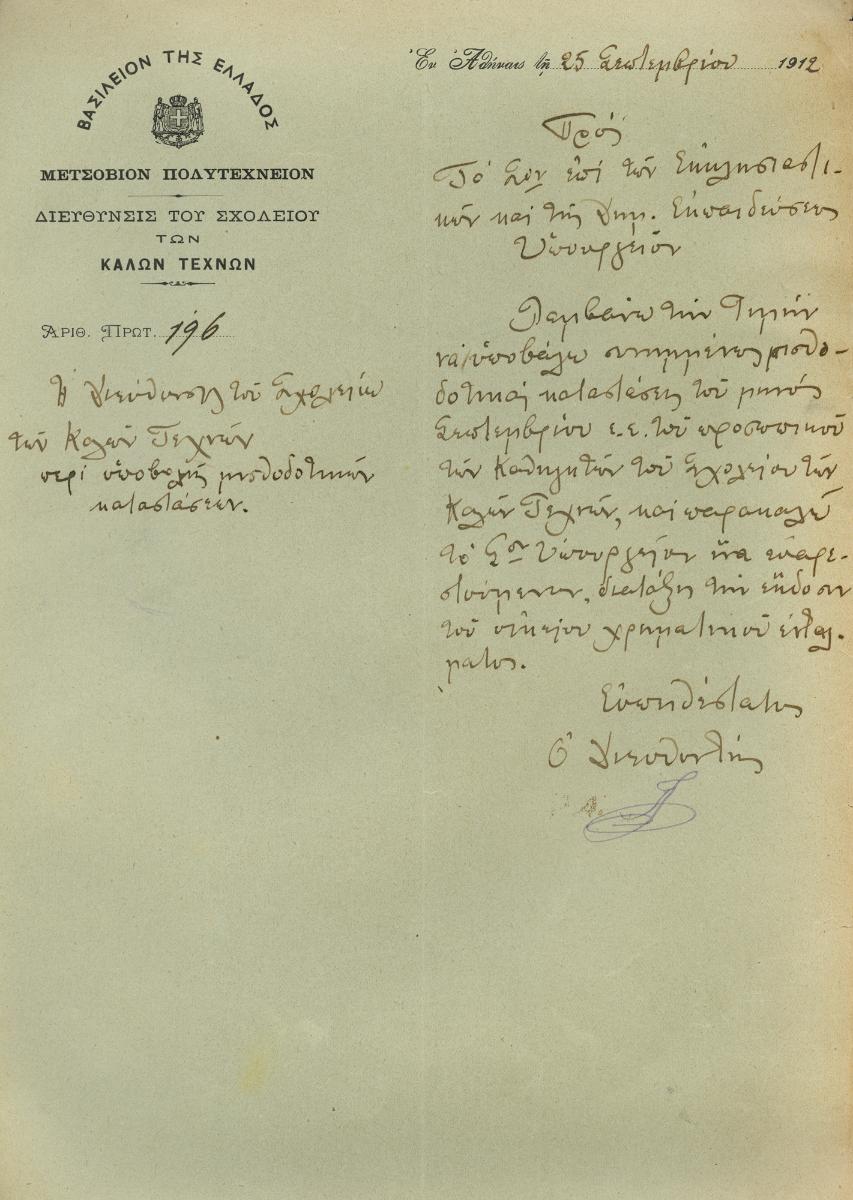 ΒΑΣΙΛΕΙΟΝ ΤΗΣ ΕΛΛΑΔΟΣ
ΜΕΤΣΟΒΙΟΝ ΠΟΛΥΤΕΧΝΕΙΟΝ
ΔΙΕΥΘΥΝΣΙΣ ΤΟΥ ΣΧΟΛΕΙΟΥ
ΤΩΝ
ΚΑΛΩΝ ΤΕΧΝΩΝ
ΑΡΙΘ. ΠΡΩΤ. 196
Ἡ Διεύθυνσις τοῦ Σχολείου
τῶν Καλῶν Τεχνῶν
περὶ ὑποβολῆς μισθοδοτικῶν
καταστάσεων.
Ἐν Ἀθήναις τῇ 25 Σεπτεμβρίου 1912
Πρός
Τὸ Σον ἐπὶ τῶν Ἐκκλησιαστι-
κῶν καὶ τῆς Δημ. Ἐκπαιδεύσεως
Ὑπουργεῖον
Λαμβάνω τὴν τιμὴν
νὰ ὑποβάλω συνημμένως μισθο-
δοτικὰς καταστάσεις τοῦ μηνὸς
Σεπτεμβρίου ἐ.ἐ. τοῦ προσωπικοῦ
τῶν Καθηγητῶν τοῦ Σχολείου τῶν
Καλῶν Τεχνῶν, καὶ παρακαλῶ
τὸ Σον Ὑπουργεῖον ἵνα εὐαρε-
στούμενον, διατάξῃ τὴν ἔκδοσιν
τοῦ οἰκείου χρηματικοῦ ἐντάλ-
ματος.
Εὐπειθέστατος
Ὁ Διευθυντής